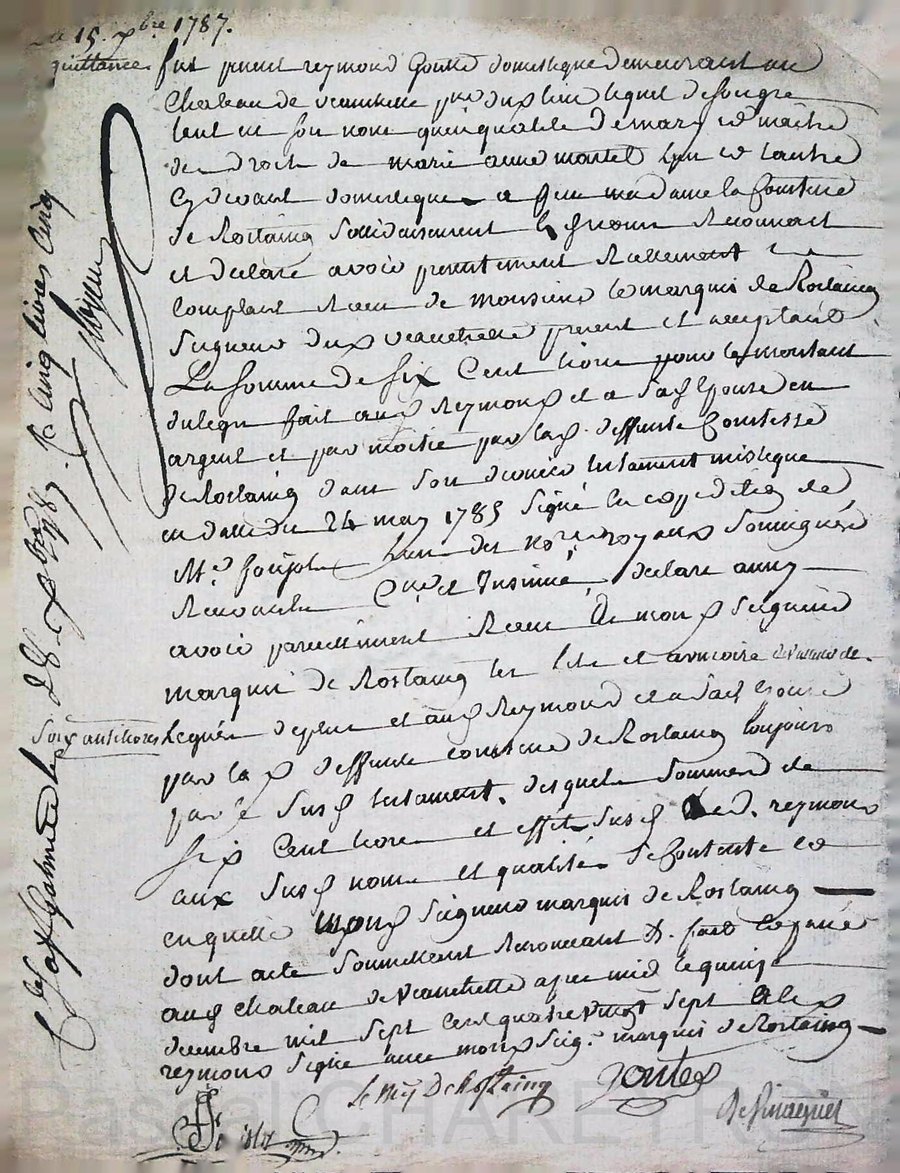 Du 15. xbre 1787.
quittance
fut present reymond Goutte domestique demeurant au
Chateau de veauchette p.nt lieu lequel de son gre
tant en son nom qu'en qualité de mary et maitre
de droit de marie anne martel l'un et l'autre
cydevant domestique de madame la Comtesse
de Rostaing solidairement reconnoit
et declare avoir presentement reellement
comptant reçu de monsieur le marquis de Rostaing
seigneur dud veauchette present et acceptant
La somme de six Cent livres pour le montant
du legs fait aud Reymond et a sad Epouse en
argent et par moitié par lad deffunte Comtesse
de Rostaing dans son dernier testament mistique
en datte du 24 may 1785 signé en expedition
Me foujols l'un des no.res royaux soussignés
C.lé et Insinué, declare aussy
avoir pareillement reçu de mond Seigneur
marquis de Rostaing les lits et armoire de valeur de
soixante livres
legués de plus et aud Reymond et a sad Epouse
par la d deffunte comtesse de Rostaing toujours
par le susd testament. desquels somme de
six Cent livres et effets susd led. reymond
aux susd noms et qualités se contente et
en quitte mond Seigneur marquis de Rostaing
dont acte soumettant renonceant &. fait et passé
aud chateau de veauchette apres midi le quinze
decembre mil sept cent quatre vingt sept et led
reymond signé avec mond seig.r marquis de Rostaing
Le M.is De Rostaing
goutte
C.lé a St Galmier le 28 xbre 1787. R. cinq livres cinq
Pascal CHAREYRON